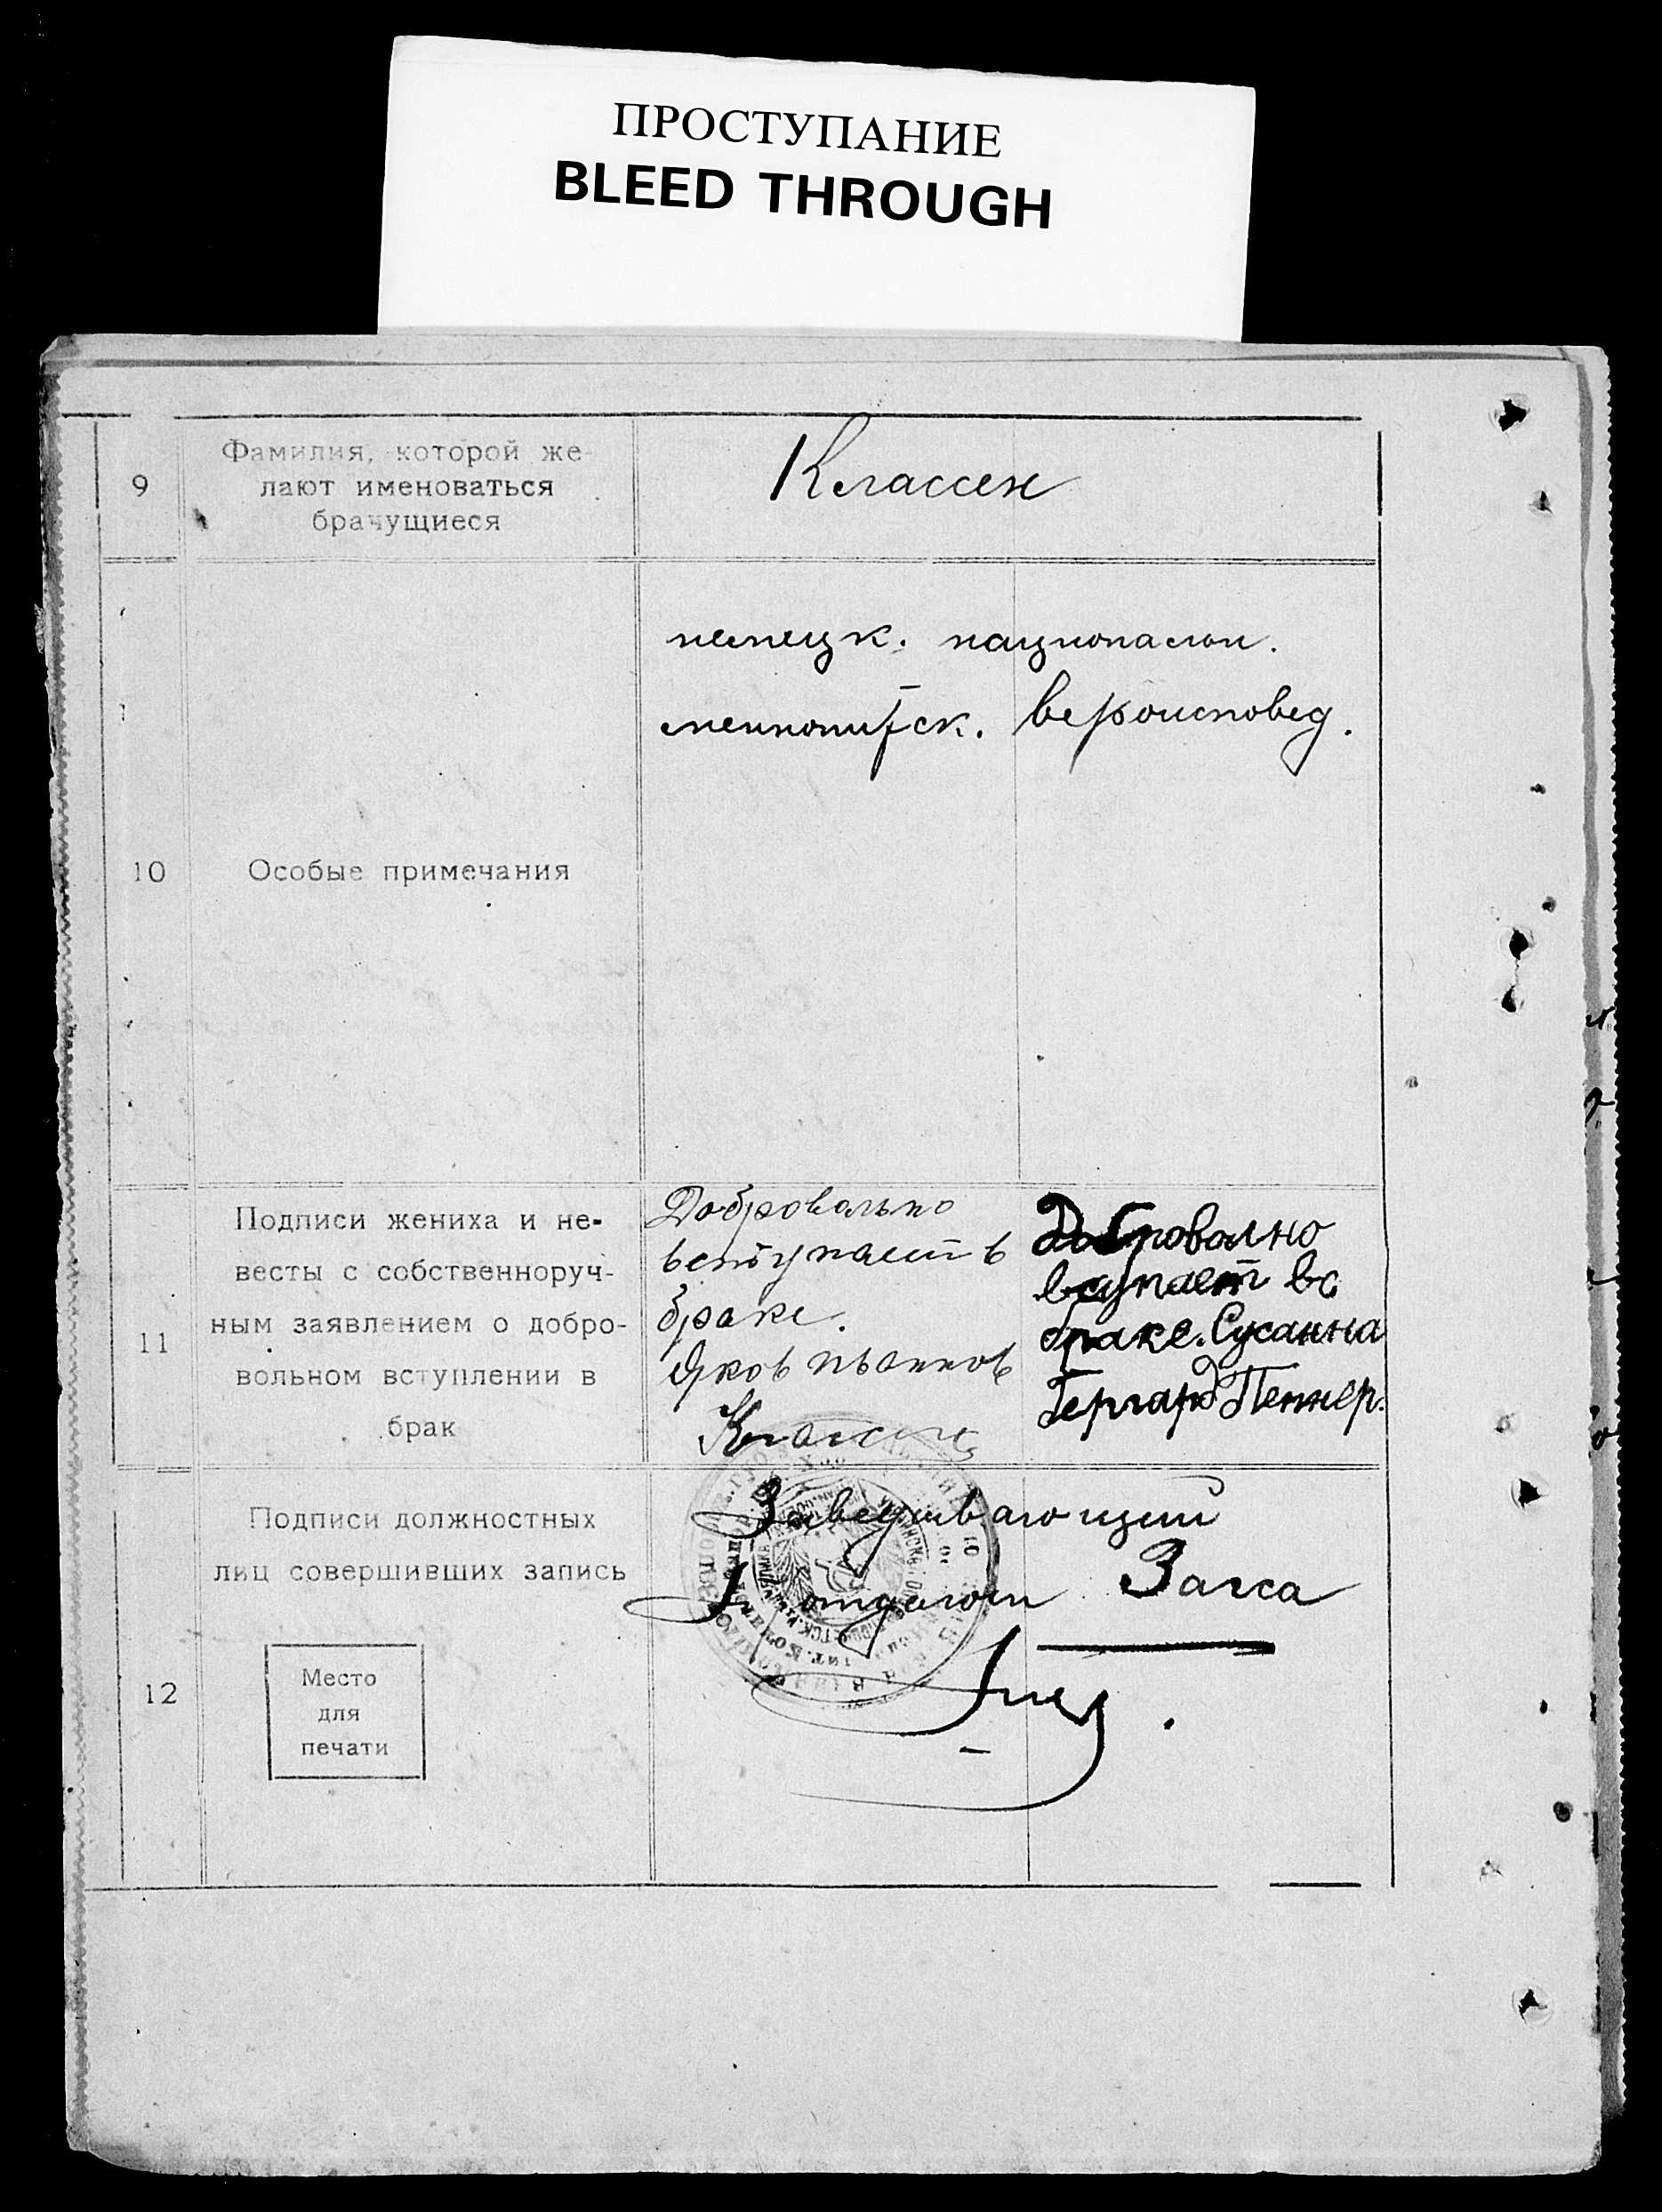 ПРОСТУПАНИЕ
BLEED THROUGH
9
Фамилия, которой же-
лают именоваться
брачущиеся
Классен
немецк. национальн.
меннонитск. вероисповед.
10
Особые примечания
11
Подписи жениха и не-
весты с собственноруч-
ным заявлением о добро-
вольном вступлении в
брак
Добровольно
вступаем в
браке.
Яков
Классен
Добровално
вс
браке. Сусанна
Гергард Пеннер.
12
Подписи должностных
лиц совершивших запись
Место
для
печати
Заведывающий
Загса